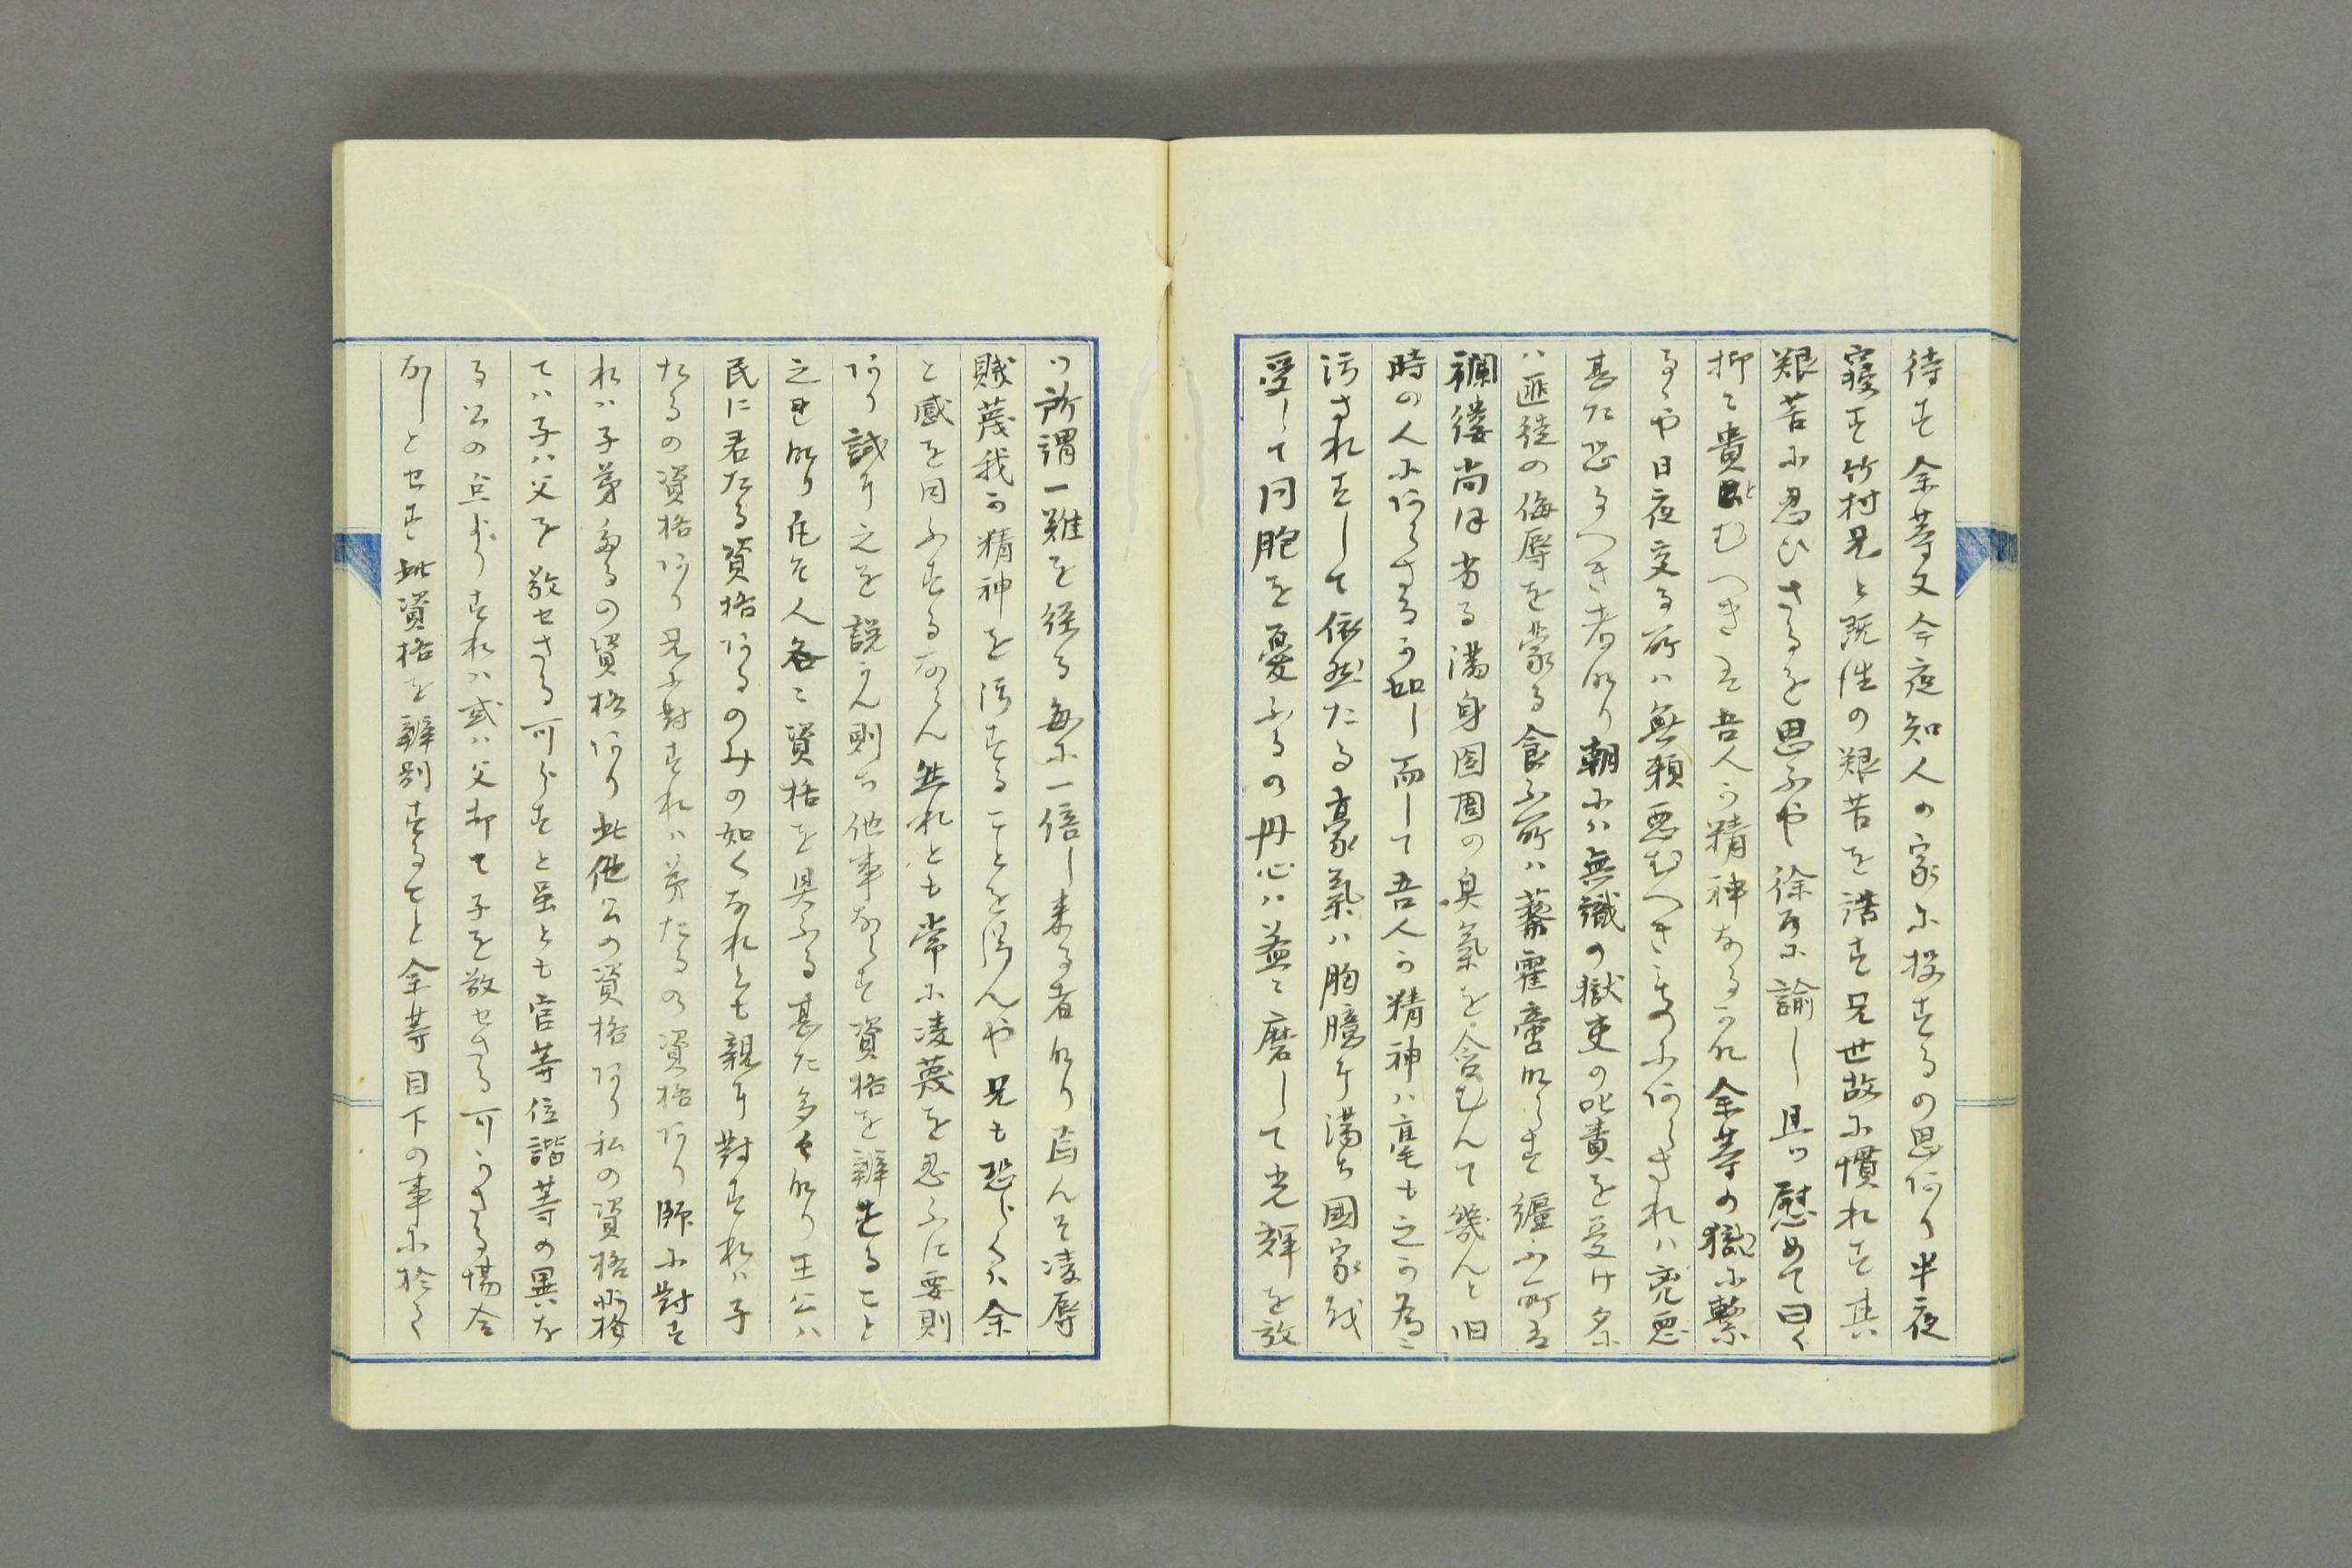 待す余等又今夜知人の家に投するの思あり半夜
寝す竹村兄と既徃の艱苦を話す兄世故に慣れす其
艱苦に忍ひさるを思ふや徐ろに諭し且つ慰めて曰く
抑々貴むへきは吾人か精神なるかな余等の獄に繋
るゝや日夜交る所は無頼悪むへき者にあらされは兇悪
甚た恐るへき者なり朝には無識の獄吏の叱責を受け夕に
は匪徒の侮辱を蒙る食ふ所は藜藿啻ならす纏ふ所は
襤褸尚ほ劣る満身囹圄の臭氣を含むて幾んと旧
時の人にあらさるか如し而して吾人か精神は毫も之か為に
汚されすして依然たる豪氣は胸臆に満ち國家を
愛して同胞を憂ふるの丹心は益々磨して光輝を放
つ所謂一難を経る毎に一倍し来る者なり焉んそ凌辱
賊蔑我か精神を汚することを得んや兄も恐らくは余
と感を同ふするならん然れとも常に凌蔑を忍ふに要則
あり試に之を説かん則ち他事ならす資格を辨すること
之なり凡そ人各々資格を具ふる甚た多々なり王公は
民に君たる資格あるのみの如くなれとも親に對すれは子
たるの資格あり兄に對すれは弟たるの資格あり師に對す
れは子弟たるの資格あり此他公の資格あり私の資格
ては子は父を敬せさる可らすと虽とも官等位階等の異な
る公の点よりすれは或は父却て子を敬せさる可からさる場合
なしとせす此資格を辨別すること余等目下の事に於て